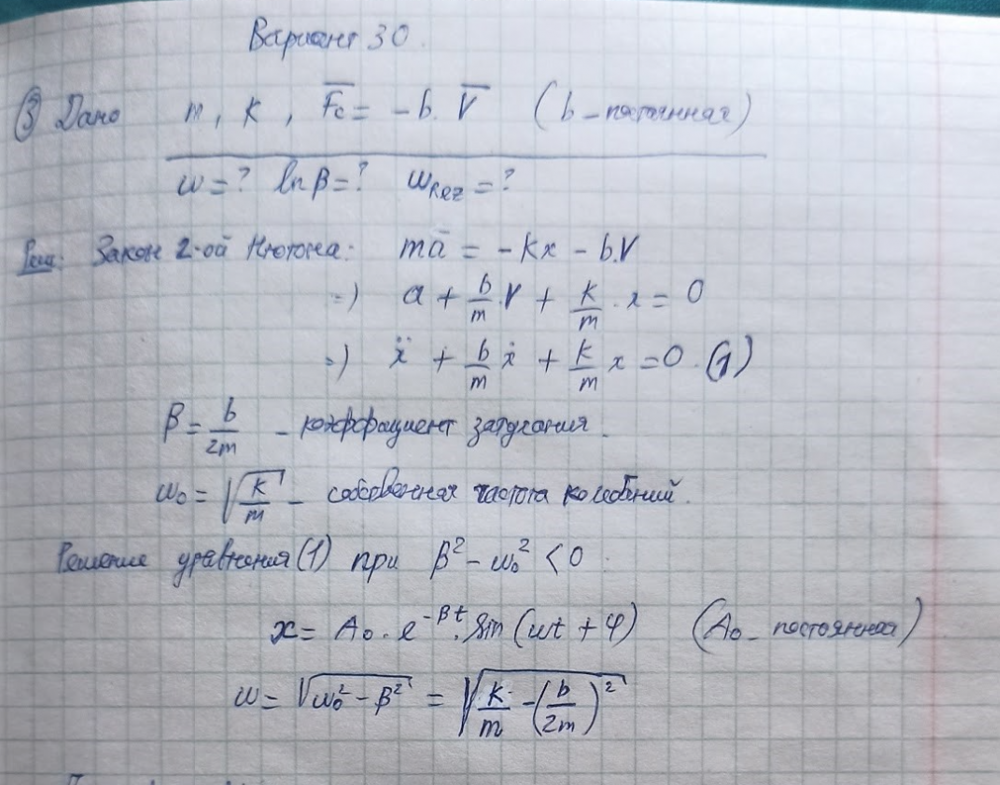 Вариант 30.
③ Дано m, k, F̅c = -b. V̅ (b - постоянная)
ω = ? ln β = ? ωRez = ?
Реш: Закон 2-ой Ньютона: ma̅ = -kx - b.V
=) a + b/m .V + k/m . x = 0
=) ẍ + b/m ẋ + k/m x = 0. (1)
β = b/2m - коэффициент затухания.
ω₀ = √(k/m) - собственная частота колебний.
Решение уравнения (1) при β² - ω₀² < 0.
x = A₀ . e^(-βt) . Sin (ωt + φ) (A₀ - постоянная)
ω = √(ω₀² - β²) = √(k/m - (b/2m)²)